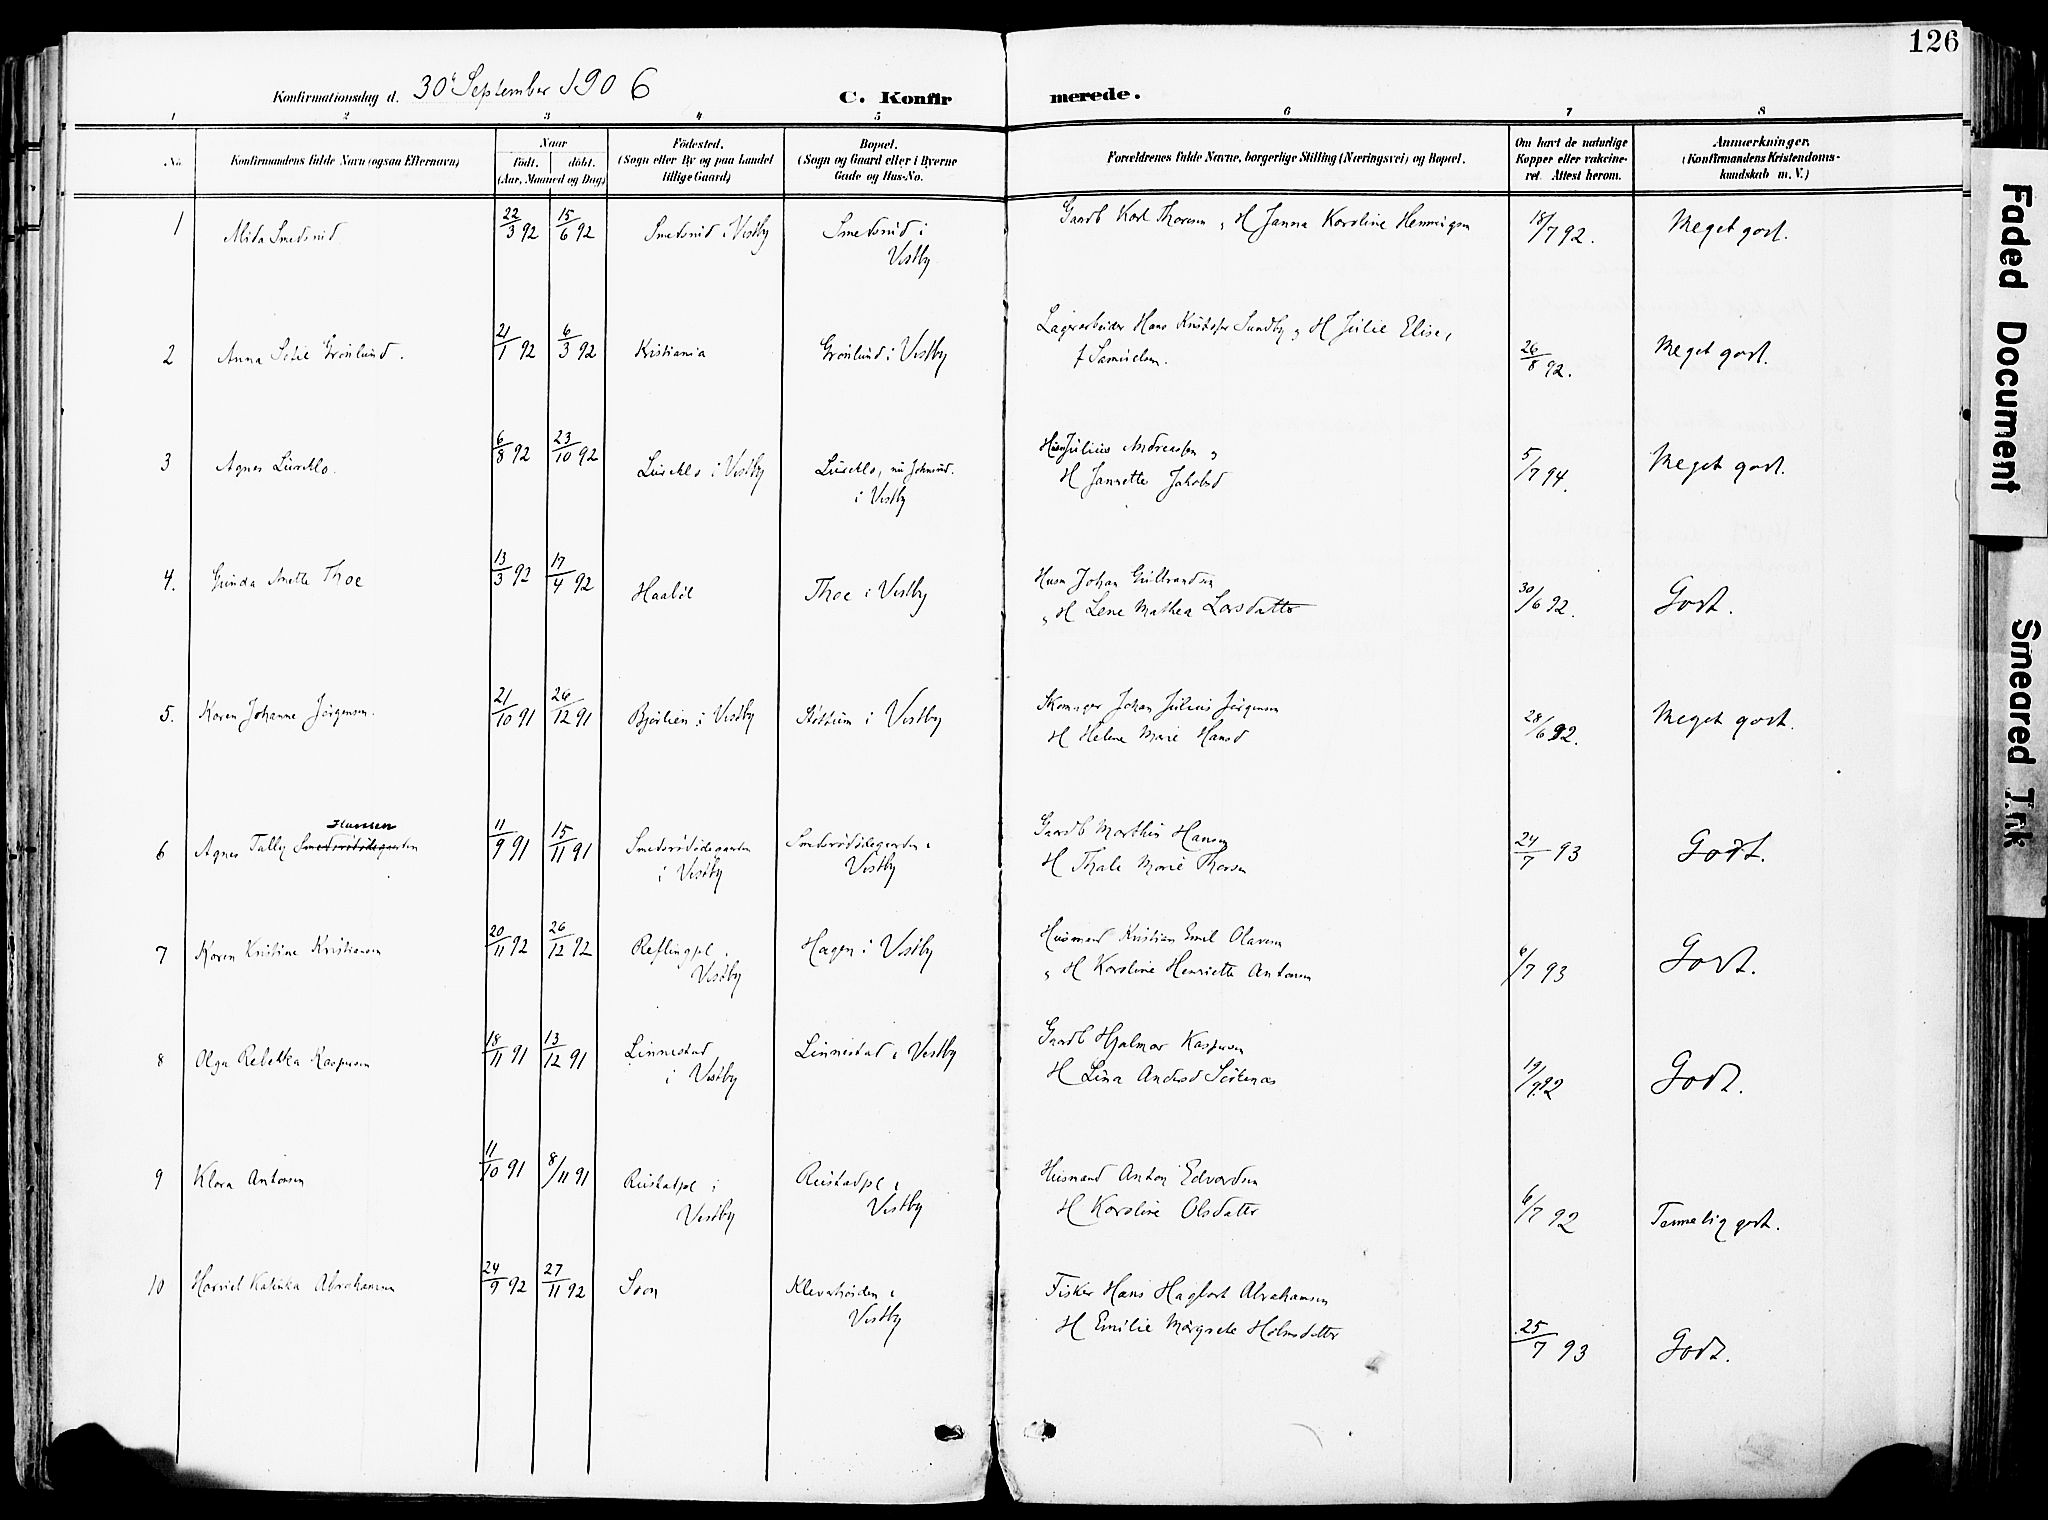 126
Konfirmationsdag d. 30' September 1906
C. Konfirmerede.
1 2 3 4 5 6 7 8
No. Konfirmandens fulde Navn (ogsaa Efternavn) Naar født. døbt. (Aar, Maaned og Dag) Fødested. (Sogn eller By og paa Landet tillige Gaard) Bopæl. (Sogn og Gaard eller i Byerne Gade og Hus-No. Forældrenes fulde Navne, borgerlige Stilling (Næringsvei) og Bopæl. Om havt de naturlige Kopper eller vakcineret. Attest herom. Anmærkninger. (Konfirmandens Kristendomskundskab m. V.)
1 22/3 92 15/6 92 i Vestby i Vestby Gaardb Karl Thoresen, H Janna Karoline 18/7 92. Meget godt.
2 Anna Grønlund. 21/1 92 6/3 92 Kristiania Grønlund i Vestby Lagerarbeider Hans Kristofer Sundby, H Julie Elise, f Samuelsen. 26/8 92. Meget godt.
3 Agnes 6/8 92 23/10 92 i Vestby i Vestby Julius Andreassen, H Jannette Jakobsd 5/7 94. Meget godt.
4. Gunda Anette Thoe 13/3 92 17/4 92 Haabøl Thoe i Vestby Husm Johan Gulbrandsen, H Lene Mathea Larsdatter 30/6 92. Godt.
5. Karen Johanne Jørgensen. 21/10 91 26/12 91 i Vestby Støttum i Vestby Skomager Johan Julius Jørgensen H Helene Marie Hansd 28/6 92. Meget godt.
6 Agnes Hansen 11/9 91 15/11 91 i Vestby Vestby Gaardb Marthin Hansen H Thale Marie 24/7 93 Godt.
7 Karen Kristine Kristiansen 20/11 92 26/12 92 Vestby Hagen i Vestby Husmand Kristian Emil Olavesen, H Karoline Henriette Antonsen 6/7 93 Godt.
8 Olga Rebekka Kaspersen 18/11 91 13/12 91 Linnestad i Vestby Linnestad i Vestby Gaardb Hjalmar Kaspersen H Lina Andersd 19/9 92 Godt.
9 Klara Antonsen 11/10 91 8/11 91 Rustadpl i Vestby Rustadpl i Vestby Husmand Anton Edvardsen H Karoline Olsdatter 6/7 92 Temmelig godt.
10 Harriet Katinka Abrahamsen 24/9 92 27/11 92 Soon Vestby Fisker Hans Hagbart Abrahamsen H Emilie Margrete Holmsdatter 25/7 93 Godt.
Faded Document
Smeared Ink